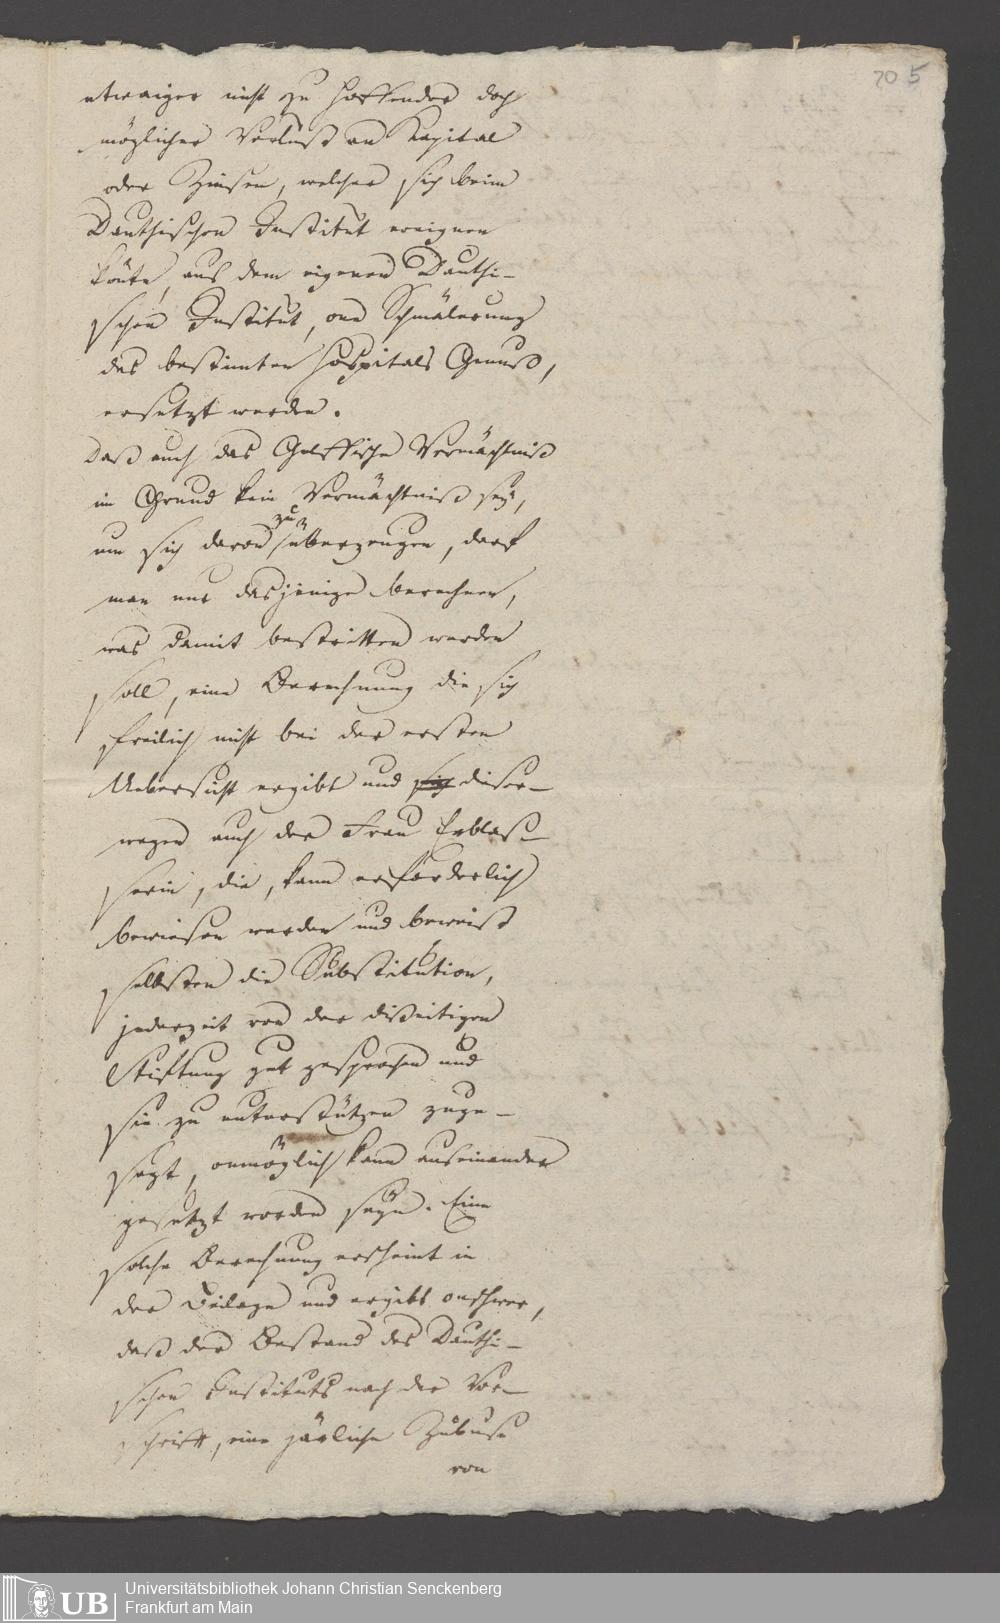 70 5
etwaiger nicht zu hoffender doch
möglicher Verlust an Kapital
oder Zinsen, welcher sich beim
Dauthischen Institut ereignen
könte, aus dem eigenen Dauthi-
schen Institut, one Schmälerung
des bestimten Hospitals Genuß,
ersetzt werden.
Daß auch das Vermächtniß
im Grund kein Vermächtniß sey,
um sich davon zu überzeugen, darf
man nur dasjenige berechnen,
was damit bestritten werden
soll, eine Berechnung die sich
freilich nicht bei der ersten
Uebersicht ergibt und sich dieser-
wegen auch der Frau Erblaß-
serin, die, kann erforderlich
bewiesen werden und beweist
selbsten die Substitution,
jederzeit von der disseitigen
Stiftung gut gesprochen und
sie zu unterstützen zuge-
sagt, onmöglich kann auseinander
gesetzt worden seyn. Eine
solche Berechnung erscheint in
der Beilage und ergibt onschwer,
daß der Bestand des Dauthi-
schen Instituts nach der Vor-
schrift, eine järliche Zubuse
von
UB
Universitätsbibliothek Johann Christian Senckenberg
Frankfurt am Main